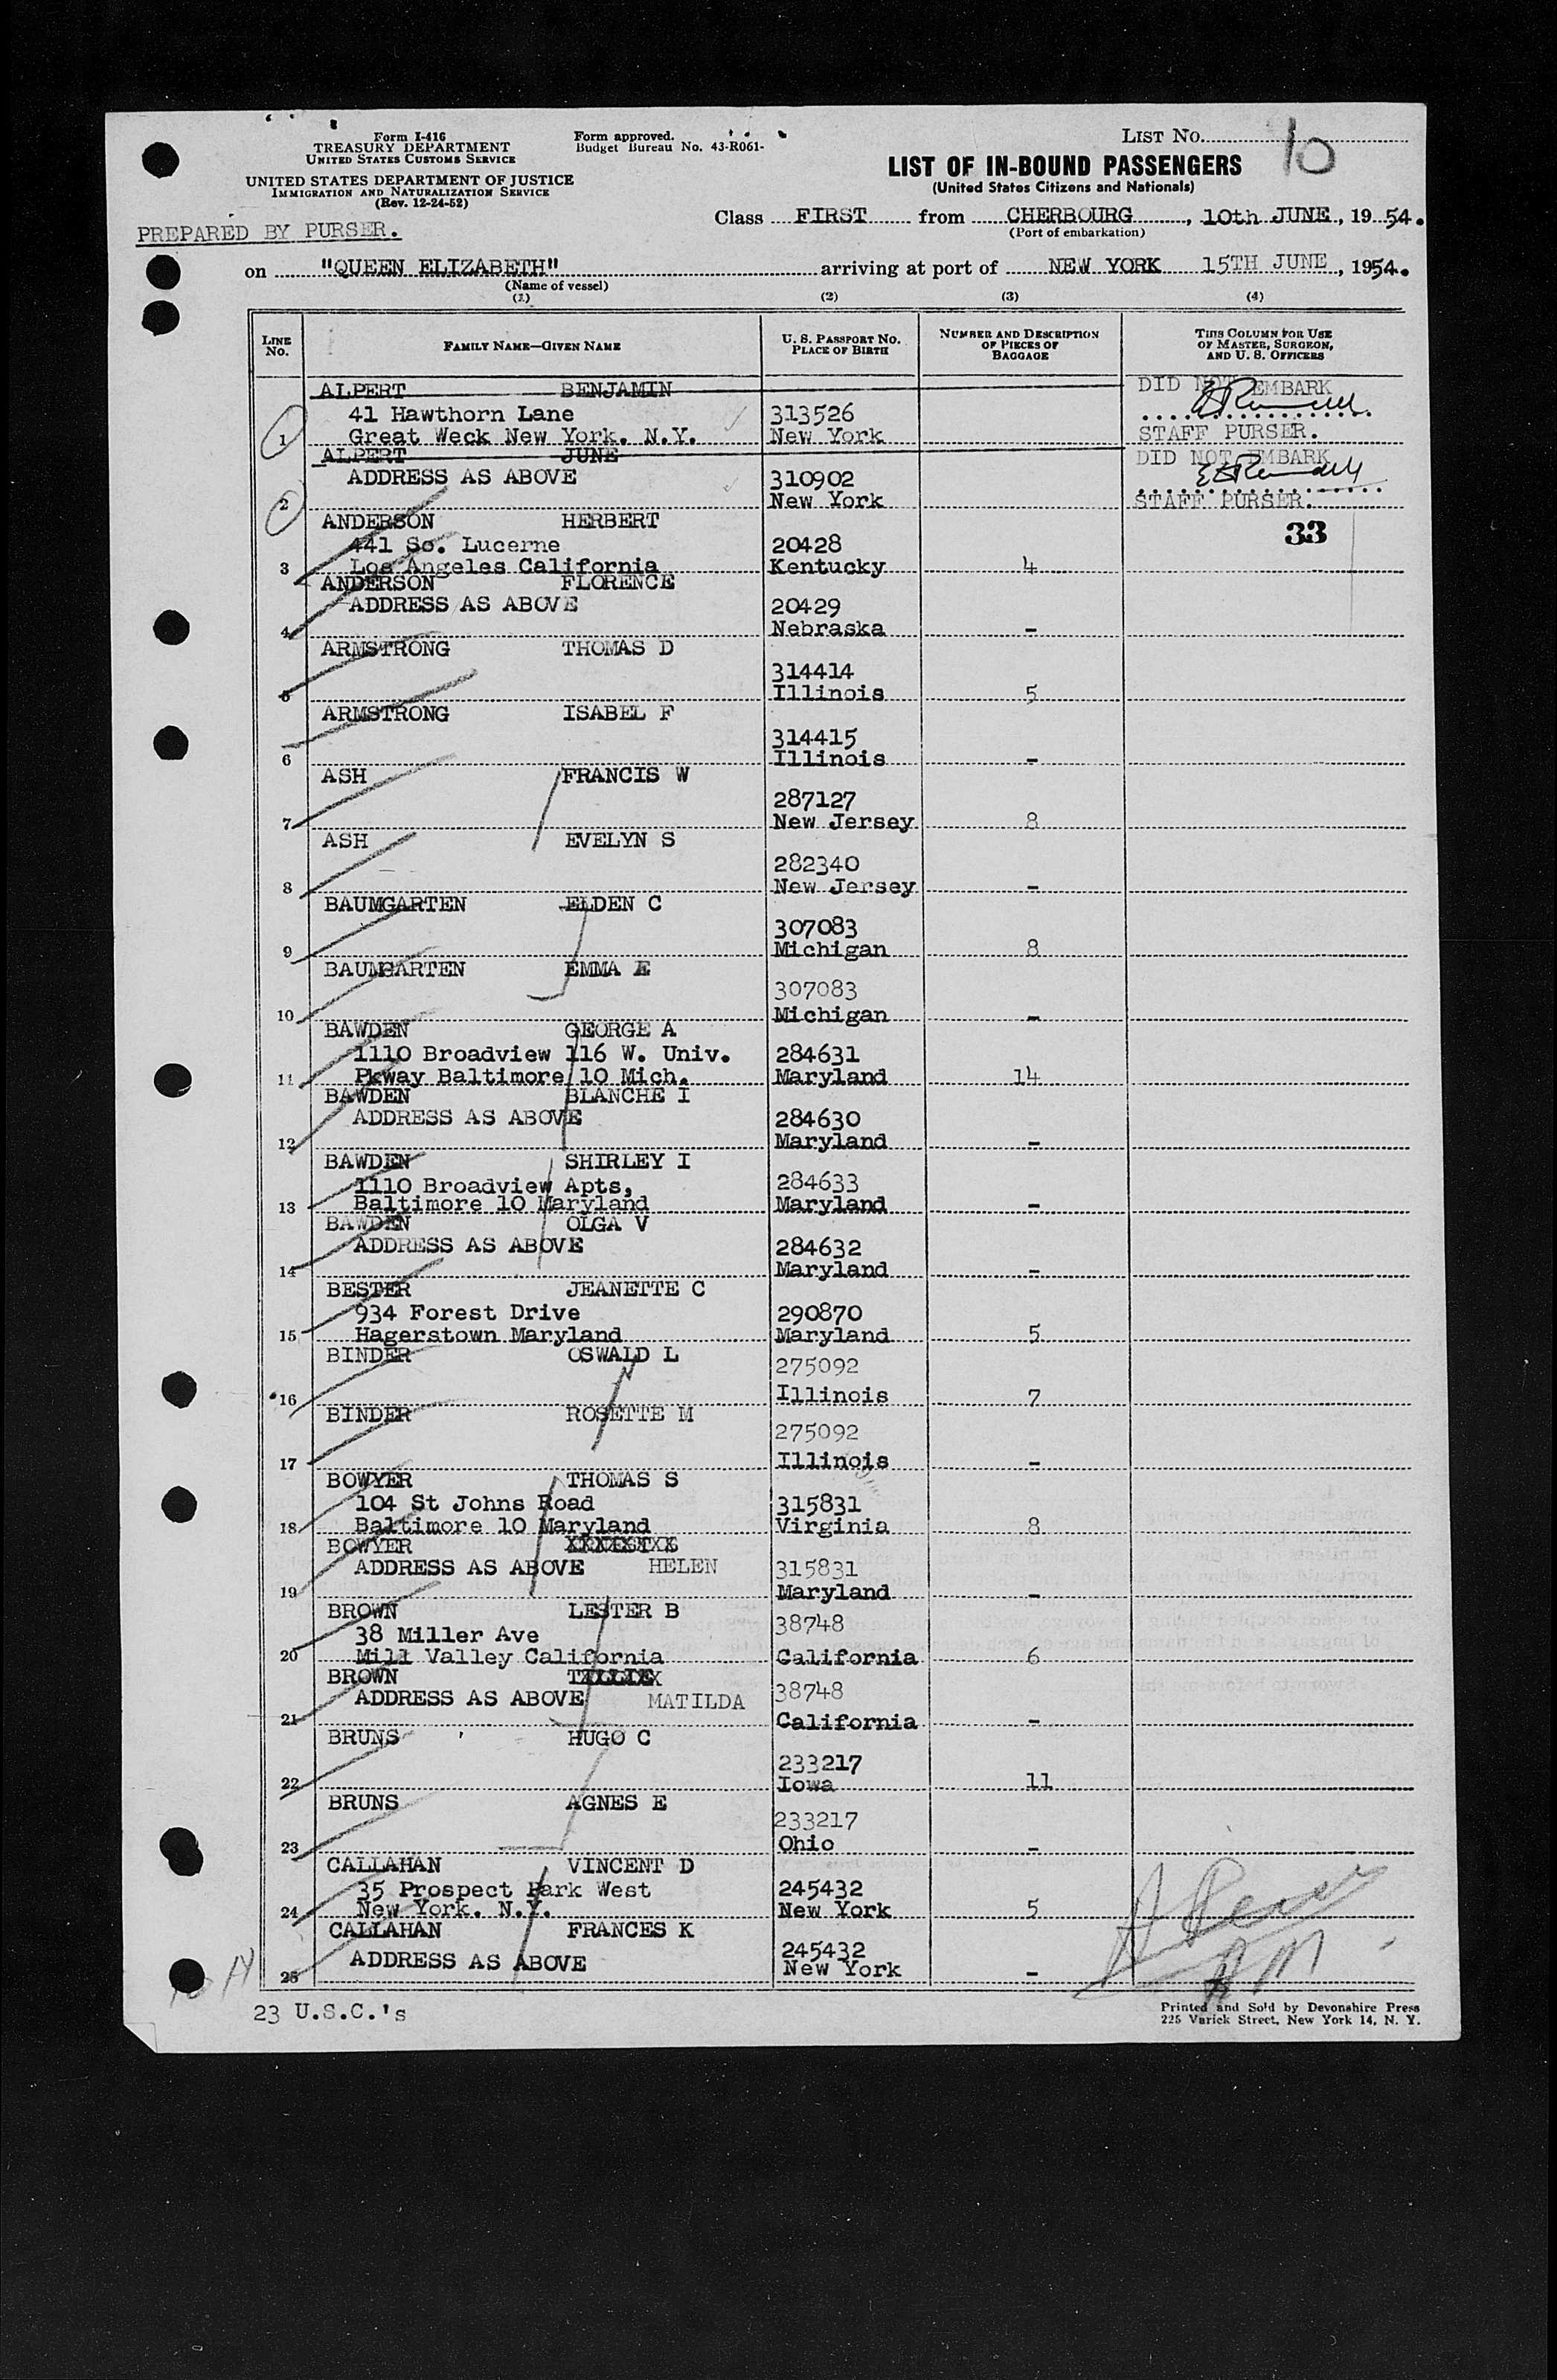 Form I-416
TREASURY DEPARTMENT
UNITED STATES CUSTOMS SERVICE
UNITED STATES DEPARTMENT OF JUSTICE
IMMIGRATION AND NATURALIZATION SERVICE
(Rev. 12-24-52)
Form approved.
Budget Bureau No. 43-R061-
LIST No. 10
LIST OF IN-BOUND PASSENGERS
(United States Citizens and Nationals)
Class FIRST from CHERBOURG, 10th JUNE, 1954.
(Port of embarkation)
PREPARED BY PURSER.
on "QUEEN ELIZABETH" arriving at port of NEW YORK 15TH JUNE, 1954.
(Name of vessel)
(1) (2) (3) (4)
LINE No. FAMILY NAME—GIVEN NAME U. S. PASSPORT No. PLACE OF BIRTH NUMBER AND DESCRIPTION OF PIECES OF BAGGAGE THIS COLUMN FOR USE OF MASTER, SURGEON, AND U. S. OFFICERS
ALPERT BENJAMIN DID NOT EMBARK
41 Hawthorn Lane 313526
1 Great Weck New York. N.Y. New York STAFF PURSER.
ALPERT JUNE DID NOT EMBARK
ADDRESS AS ABOVE 310902
2 New York STAFF PURSER.
ANDERSON HERBERT 33
441 So. Lucerne 20428
3 Los Angeles California Kentucky 4
ANDERSON FLORENCE
ADDRESS AS ABOVE 20429
4 Nebraska -
ARMSTRONG THOMAS D
314414
5 Illinois 5
ARMSTRONG ISABEL F
314415
6 Illinois -
ASH FRANCIS W
287127
7 New Jersey 8
ASH EVELYN S
282340
8 New Jersey -
BAUMGARTEN ELDEN C
307083
9 Michigan 8
BAUMGARTEN EMMA E
307083
10 Michigan -
BAWDEN GEORGE A
1110 Broadview 116 W. Univ. 284631
11 Pkway Baltimore 10 Mich. Maryland 14
BAWDEN BLANCHE I
ADDRESS AS ABOVE 284630
12 Maryland -
BAWDEN SHIRLEY I
1110 Broadview Apts, 284633
13 Baltimore 10 Maryland Maryland -
BAWDEN OLGA V
ADDRESS AS ABOVE 284632
14 Maryland -
BESTER JEANETTE C
934 Forest Drive 290870
15 Hagerstown Maryland Maryland 5
BINDER OSWALD L
275092
16 Illinois 7
BINDER ROSETTE M
275092
17 Illinois -
BOWYER THOMAS S
104 St Johns Road 315831
18 Baltimore 10 Maryland Virginia 8
BOWYER
ADDRESS AS ABOVE HELEN 315831
19 Maryland -
BROWN LESTER B
38 Miller Ave 38748
20 Mill Valley California California 6
BROWN TILLIE
ADDRESS AS ABOVE MATILDA 38748
21 California -
BRUNS HUGO C
233217
22 Iowa 11
BRUNS AGNES E
233217
23 Ohio -
CALLAHAN VINCENT D
35 Prospect Park West 245432
24 New York. N.Y. New York 5
CALLAHAN FRANCES K
ADDRESS AS ABOVE 245432
25 New York -
23 U.S.C.'s
Printed and Sold by Devonshire Press
225 Varick Street, New York 14, N. Y.